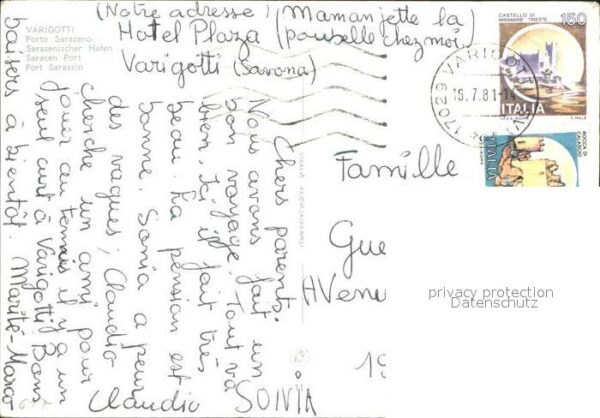 VARIGOTTI
Porto Saraceno
Sarazenischer Hafen
Saracen Port
Port Sarassin
(Notre adresse)
Hotel Plaza
Varigotti (Savona)
(Maman jette la
poubelle chez moi)
CASTELLO DI
MIRAMARE-TRIESTE
150
ITALIA
ROCCA DI
CALASCIO
ITALIA
17029 VARIGOTTI
15.7.81-1
Chers parents.
Nous avons fait un
bon voyage. Tout va
bien. Ici il fait très
beau. La pension est
bonne. Sonia a peur
des vagues, Claudio
cherche un ami pour
jouer au tennis il y a un
seul curt à Varigotti. Bons
baisers à bientôt. Marité-Marco
Claudio SONIA
Famille
Gue
AVenu
19
privacy protection
Datenschutz